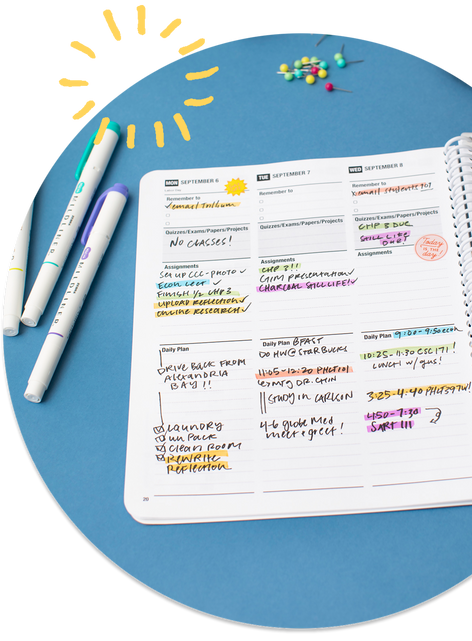 MON SEPTEMBER 6
Remember to
✓email William
Quizzes/Exams/Papers/Projects
NO CLASSES!
Assignments
Set up CCC-PHOTO ✓
Econ Lect ✓
FINISH 1/2 CHP 3
UPLOAD REFLECTION ✓
ONLINE RESEARCH ✓
Daily Plan
DRIVE BACK FROM
ALEXANDRIA
BAY!!
LAUNDRY
UNPACK
CLEAN ROOM
REWRITE
REFLECTION
TUE SEPTEMBER 7
Remember to
Quizzes/Exams/Papers/Projects
Assignments
CHP 3!!
GIM PRESENTATION ✓
CHARCOAL STILL LIFE! ✓
Daily Plan BFAST
DO HW @ STARBUCKS
11:05-12:20 PHOTO II
STUDY IN CARLSON
4-6 globe Med
meet & greet!
WED SEPTEMBER 8
Remember to
Quizzes/Exams/Papers/Projects
CHP 3 DUE
STILL LIFE
DUE!
Today
is the
day
Assignments
Daily Plan 9:00-9:50 econ
10:25-11:30 CSC 171!
LUNCH w/ gus!
3:25-4:40
4:50-7:30
SART III